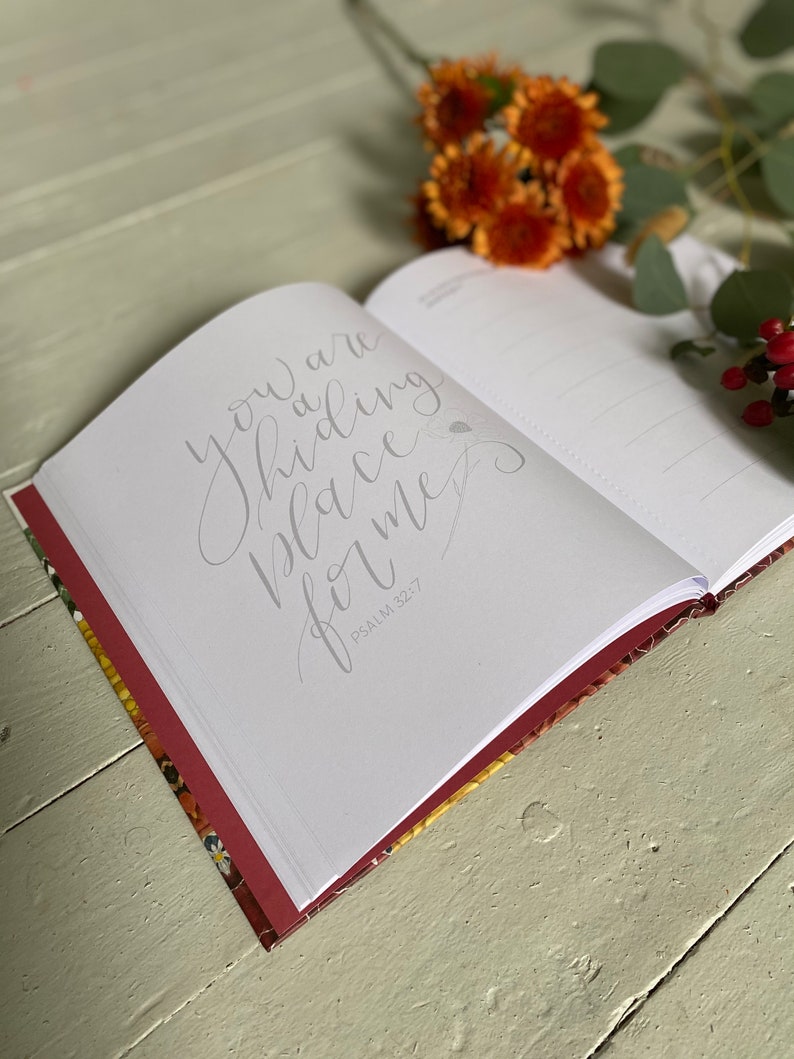 you are
a
hiding
place
for me
PSALM 32:7